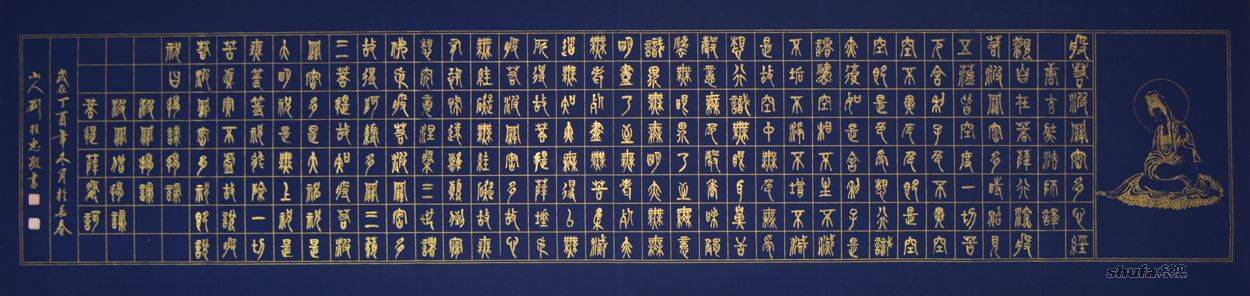 般若波羅蜜多心經
唐玄奘法師譯
觀自在菩薩行深般
若波羅蜜多時照見
五蘊皆空度一切苦
厄舍利子色不異空
空不異色色即是空
空即是色受想行識
亦復如是舍利子是
諸法空相不生不滅
不垢不淨不增不減
是故空中無色無受
想行識無眼耳鼻舌
身意無色聲香味觸
法無眼界乃至無意
識界無無明亦無無
明盡乃至無老死亦
無老死盡無苦集滅
道無智亦無得以無
所得故菩提薩埵依
般若波羅蜜多故心
無罣礙無罣礙故無
有恐怖遠離顛倒夢
想究竟涅槃三世諸
佛依般若波羅蜜多
故得阿耨多羅三藐
三菩提故知般若波
羅蜜多是大神咒是
大明咒是無上咒是
無等等咒能除一切
苦真實不虛故說般
若波羅蜜多咒即說
咒曰揭諦揭諦
波羅揭諦
波羅僧揭諦
菩提薩婆訶
歲在丁酉年冬月於長春
山人劉忠敬書